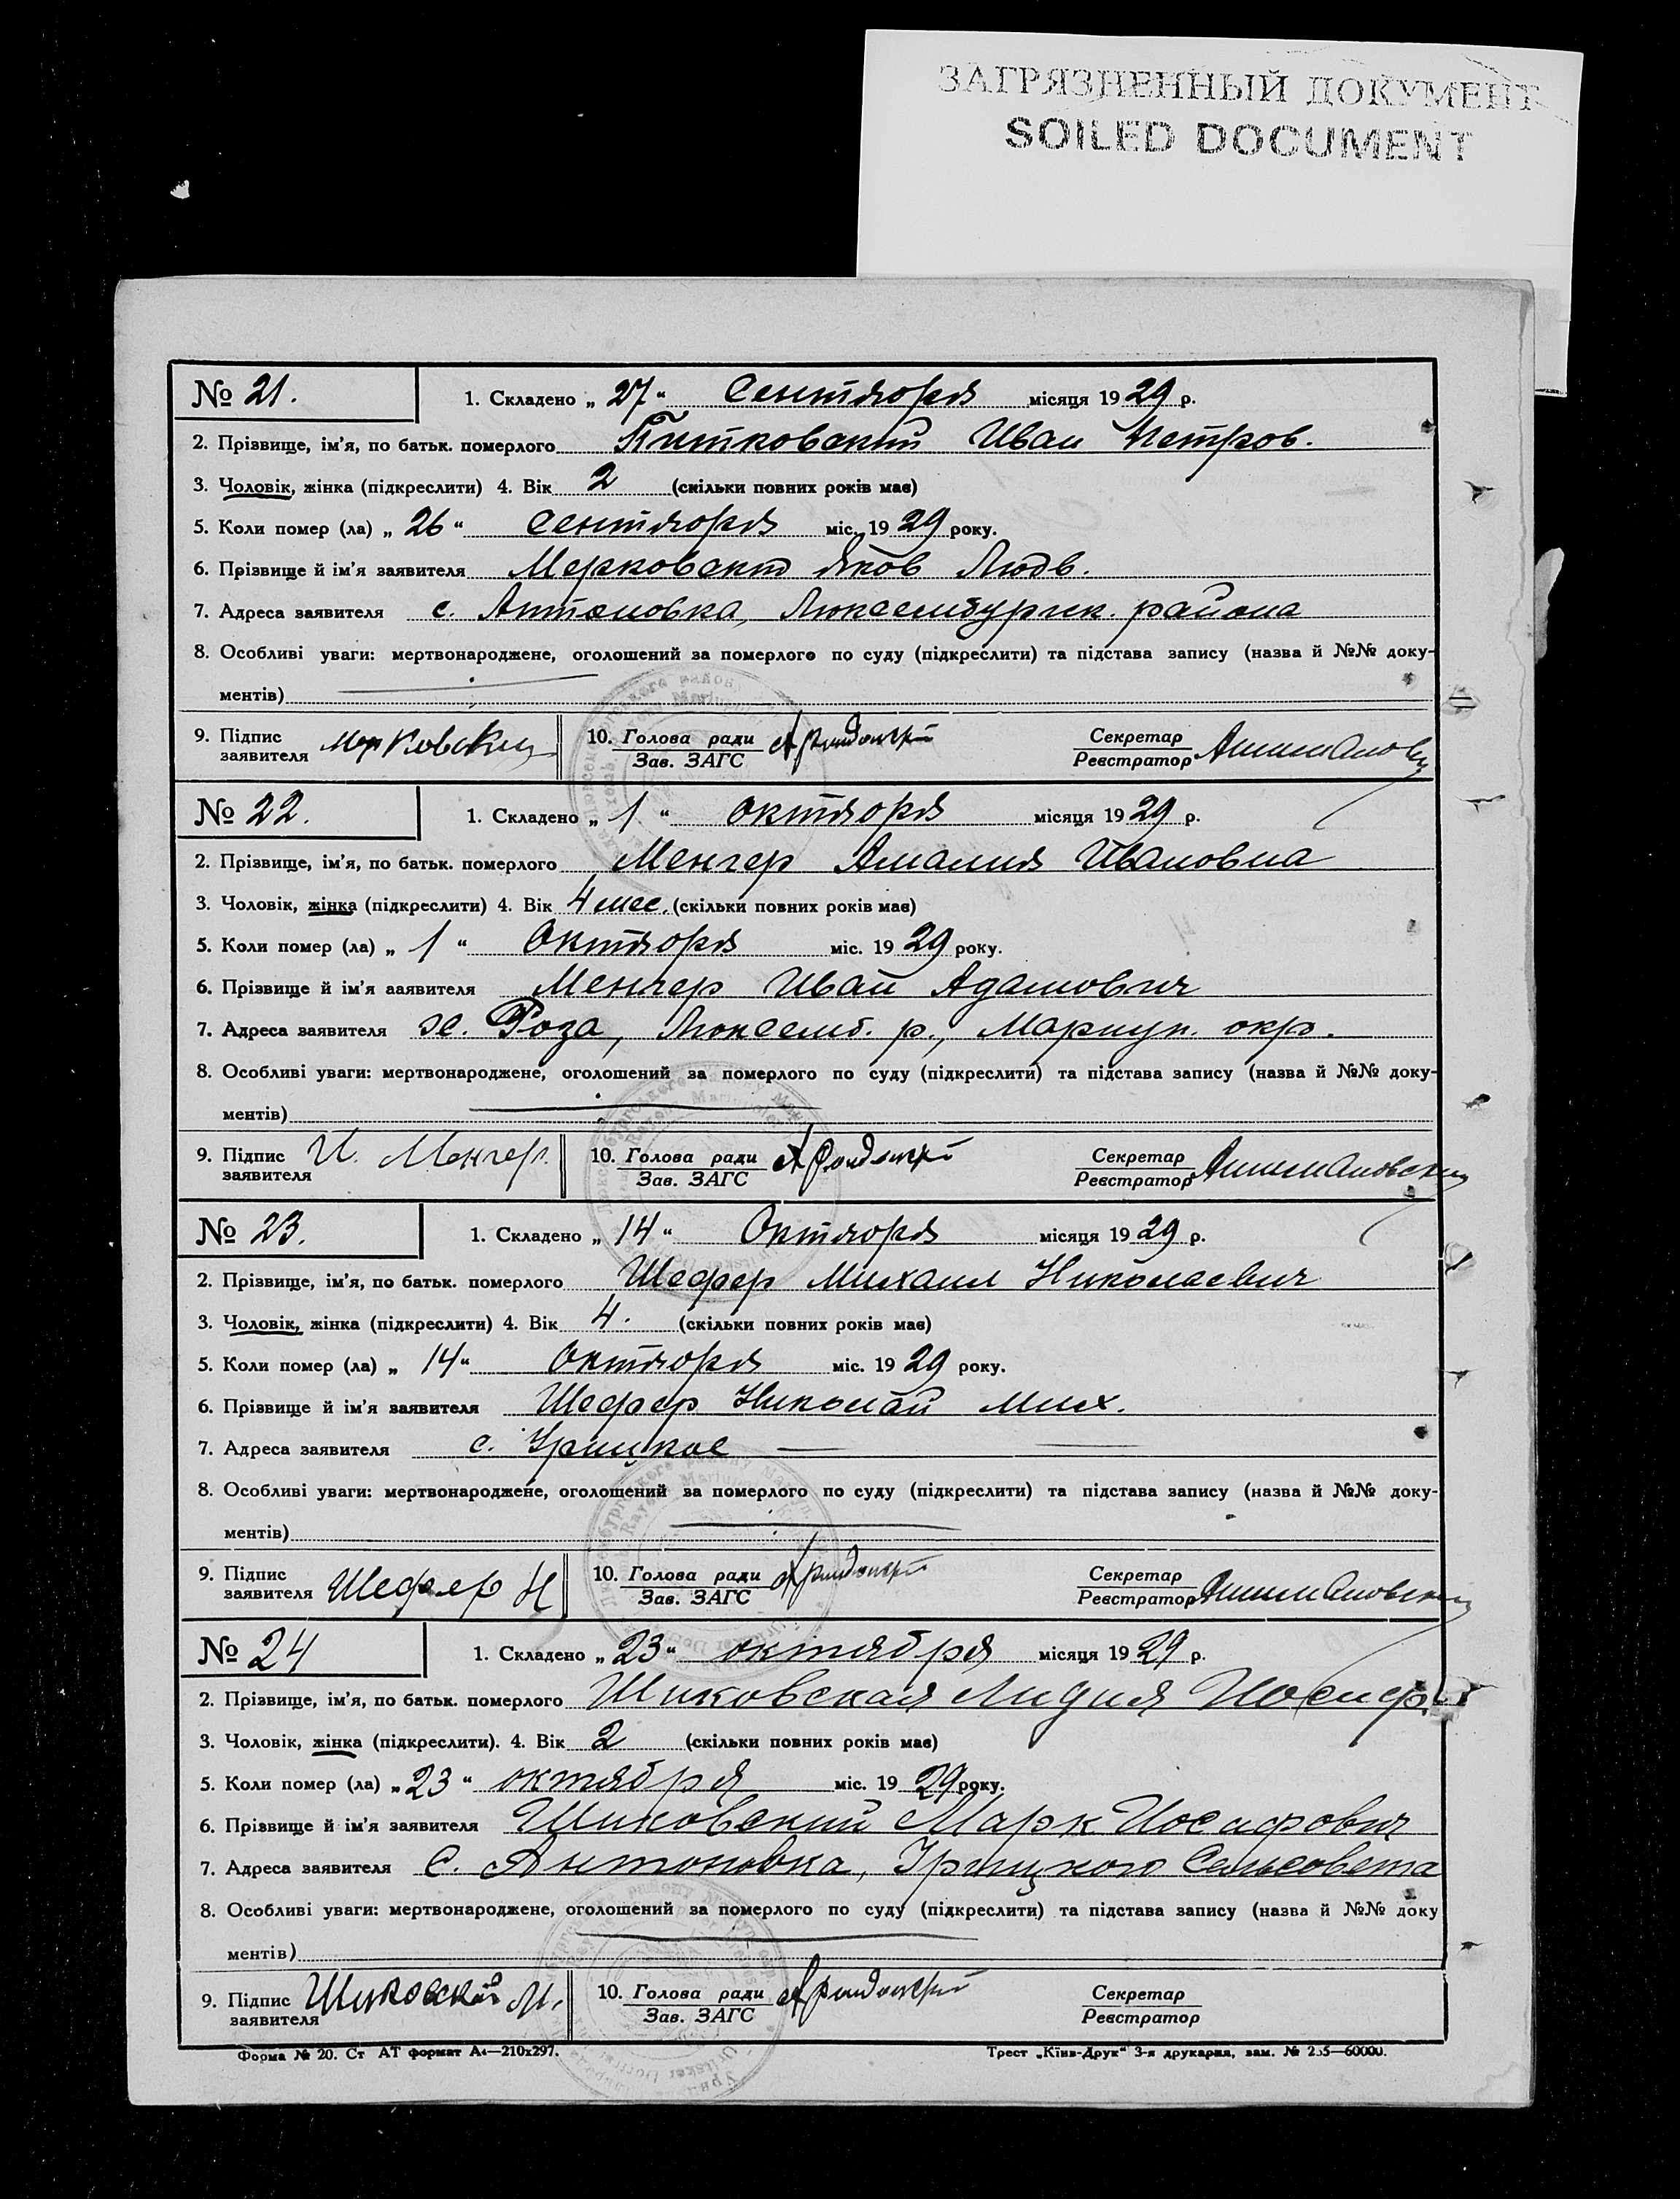 ЗАГРЯЗНЕННЫЙ ДОКУМЕНТ
SOILED DOCUMENT
№ 21. 1. Складено „ 27 “ Сентября місяця 19 29 р.
2. Прізвище, ім'я, по батьк. померлого Питковский Иван Петров.
3. Чоловік, жінка (підкреслити) 4. Вік 2 (скільки повних років має)
5. Коли помер (ла) „ 26 “ Сентября міс. 19 29 року.
6. Прізвище й ім'я заявителя Мерковский Яков Людв.
7. Адреса заявителя с. Антоновка, Люксембургск. района
8. Особливі уваги: мертвонароджене, оголошений за померлого по суду (підкреслити) та підстава запису (назва й №№ доку-
ментів)
9. Підпис заявителя Мерковский 10. Голова ради Зав. ЗАГС Секретар Реєстратор
№ 22. 1. Складено „ 1 “ Октября місяця 19 29 р.
2. Прізвище, ім'я, по батьк. померлого Менгер Амалия Ивановна
3. Чоловік, жінка (підкреслити) 4. Вік 4 мес. (скільки повних років має)
5. Коли помер (ла) „ 1 “ Октября міс. 19 29 року.
6. Прізвище й ім'я заявителя Менгер Иван Адамович
7. Адреса заявителя х. Роза, Люксемб. р., Мариуп. окр.
8. Особливі уваги: мертвонароджене, оголошений за померлого по суду (підкреслити) та підстава запису (назва й №№ доку-
ментів)
9. Підпис заявителя И. Менгер. 10. Голова ради Зав. ЗАГС Секретар Реєстратор
№ 23. 1. Складено „ 14 “ Октября місяця 19 29 р.
2. Прізвище, ім'я, по батьк. померлого Шефер Михаил Николаевич
3. Чоловік, жінка (підкреслити) 4. Вік 4. (скільки повних років має)
5. Коли помер (ла) „ 14 “ Октября міс. 19 29 року.
6. Прізвище й ім'я заявителя Шефер Николай Мих.
7. Адреса заявителя с. Урицкое
8. Особливі уваги: мертвонароджене, оголошений за померлого по суду (підкреслити) та підстава запису (назва й №№ доку-
ментів)
9. Підпис заявителя Шефер Н 10. Голова ради Зав. ЗАГС Секретар Реєстратор
№ 24 1. Складено „ 23 “ октября місяця 19 29 р.
2. Прізвище, ім'я, по батьк. померлого Шиковская Лидия Иосиф.
3. Чоловік, жінка (підкреслити). 4. Вік 2 (скільки повних років має)
5. Коли помер (ла) „ 23 “ октября міс. 19 29 року.
6. Прізвище й ім'я заявителя Шиковский Марк Иосифович
7. Адреса заявителя С. Антоновка, Урицкого Сельсовета
8. Особливі уваги: мертвонароджене, оголошений за померлого по суду (підкреслити) та підстава запису (назва й №№ доку
ментів)
9. Підпис заявителя Шиковский М. 10. Голова ради Зав. ЗАГС Секретар Реєстратор
Форма № 20. Ст АТ формат А4—210х297. Трест „Київ-Друк“ 3-я друкарня, зам. № 235—60000.